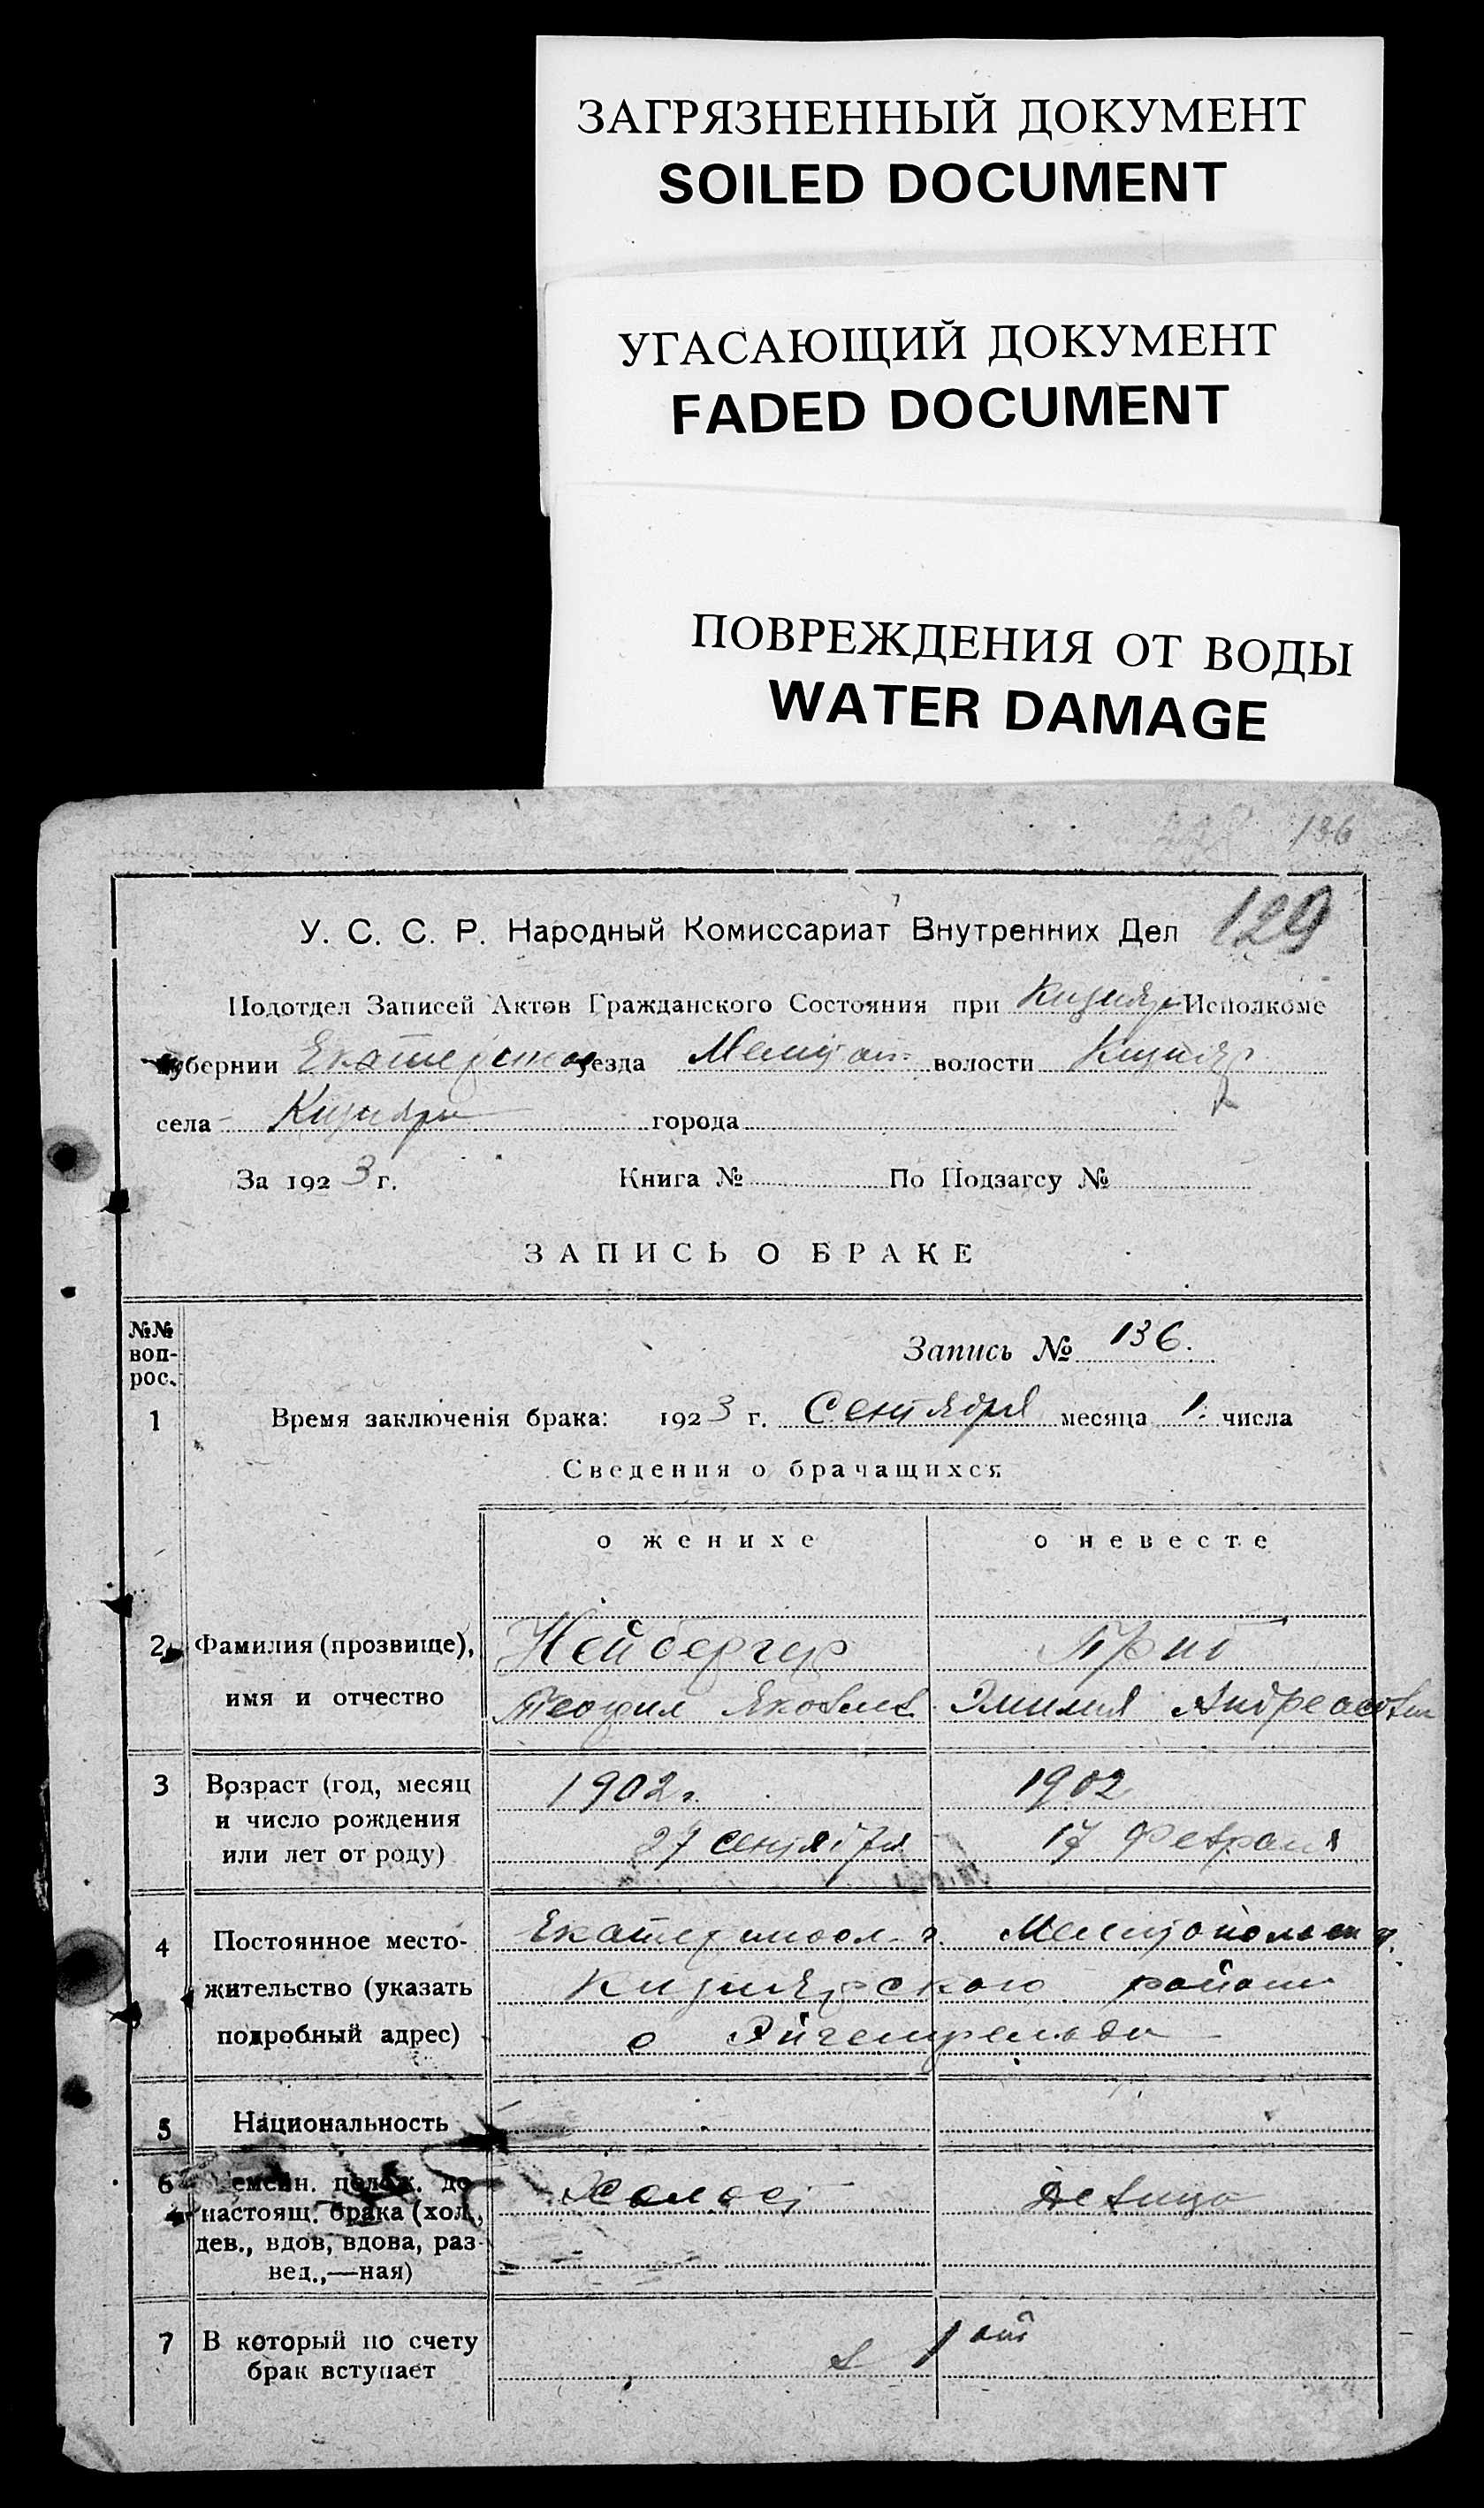 ЗАГРЯЗНЕННЫЙ ДОКУМЕНТ
SOILED DOCUMENT
УГАСАЮЩИЙ ДОКУМЕНТ
FADED DOCUMENT
ПОВРЕЖДЕНИЯ ОТ ВОДЫ
WATER DAMAGE
136
129
У. С. С. Р. Народный Комиссариат Внутренних Дел
Подотдел Записей Актов Гражданского Состояния при Кизияр Исполкоме
губернии уезда волости Кизияр
села Кизияр города
За 1923 г. Книга № По Подзагсу №
ЗАПИСЬ О БРАКЕ
№№ воп-рос.
Запись № 136.
1 Время заключенія брака: 1923 г. Сентября месяца 1. числа
Сведения о брачащихся
о женихе о невесте
2 Фамилия (прозвище), Нейбергер
имя и отчество Теофил Яковлев Эмилия Андреасовна
3 Возраст (год, месяц 1902 г. 1902
и число рождения 27 сентября 17 Февраля
или лет от роду)
4 Постоянное место- Мелитопольск у.
жительство (указать Кизиярского района
подробный адрес) с Эйгенфельд
5 Национальность
6 Семейн. полож. до Холост Девица
настоящ. брака (хол.,
дев., вдов, вдова, раз-
вед.,—ная)
7 В который по счету в 1 ый
брак вступает